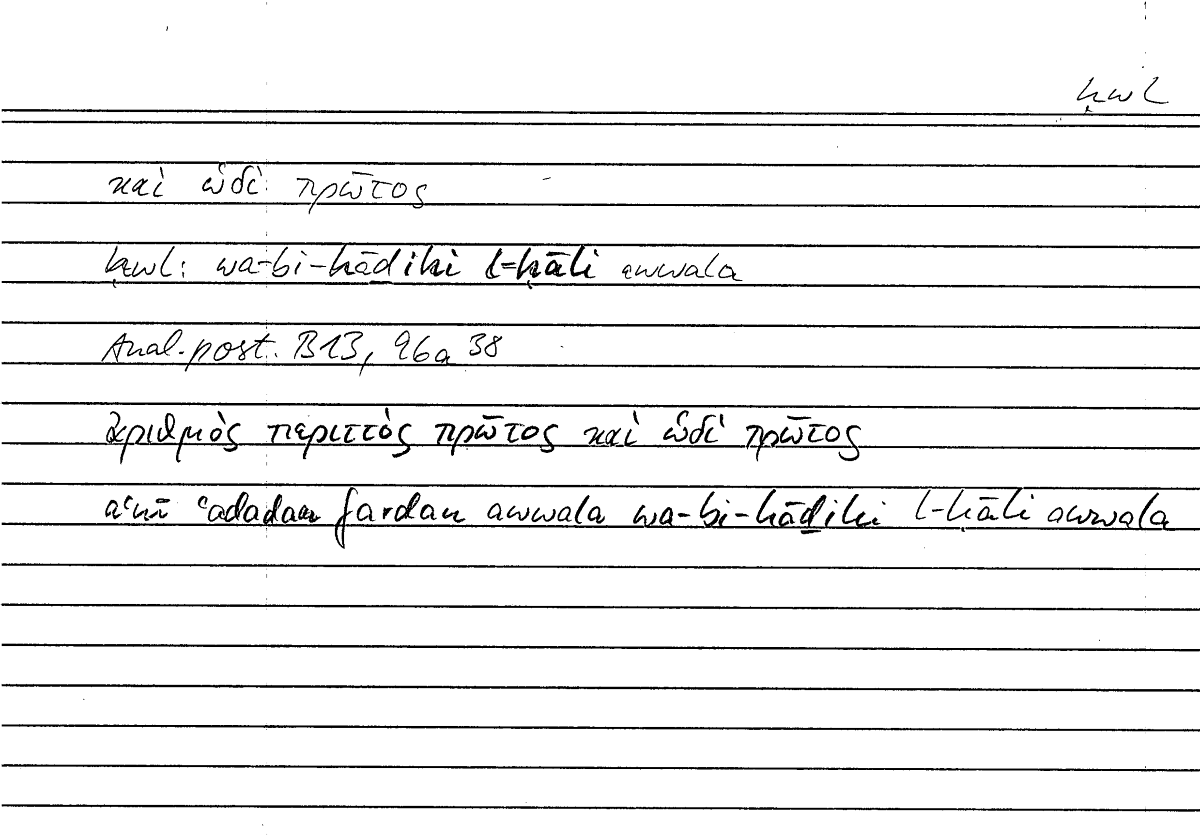 ḥwl
καὶ ὡδὶ πρῶτος
ḥwl: wa-bi-hāḏihi l-ḥāli awwala
Anal. post. B13, 96a 38
ἀριθμὸς περιττὸς πρῶτος καὶ ὡδὶ πρῶτος
aʿnī ʿadadan fardan awwala wa-bi-hāḏihi l-ḥāli awwala